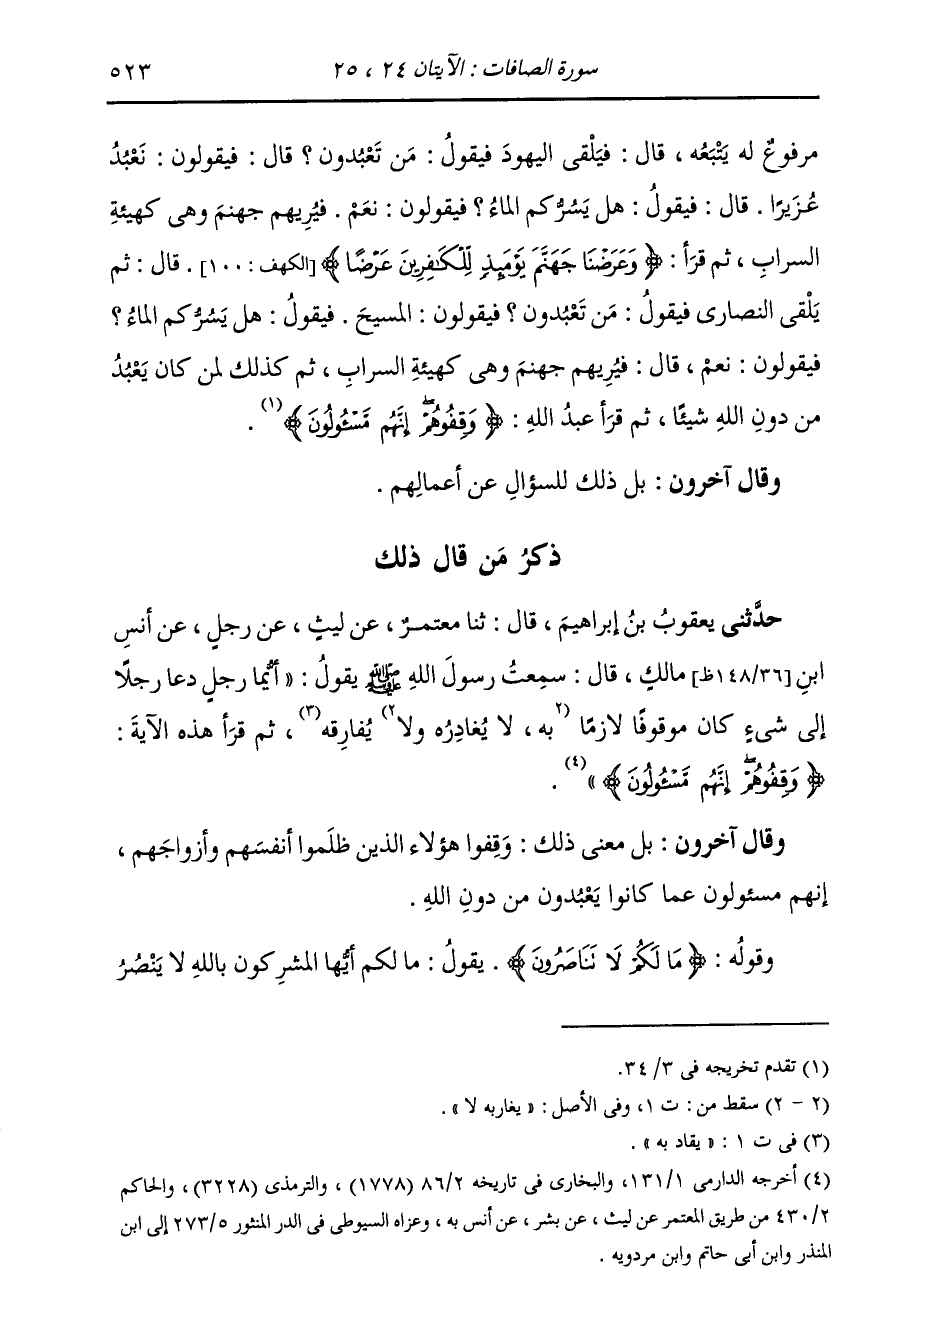 سورة الصافات : الآيتان ٢٤ ، ٢٥ ٥٢٣
مرفوعٌ له يَتْبَعُه ، قال : فيَلْقى اليهودَ فيقولُ : مَن تَعْبُدون ؟ قال : فيقولون : نَعْبُدُ
عُزَيرًا . قال : فيقولُ : هل يَسُرُّكم الماءُ ؟ فيقولون : نعَمْ . فيُرِيهم جهنمَ وهى كهيئةِ
السرابِ ، ثم قرَأ : ﴿ وَعَرَضْنَا جَهَنَّمَ يَوْمَئِذٍ لِّلْكَٰفِرِينَ عَرْضًا ﴾ [الكهف : ١٠٠] . قال : ثم
يَلْقى النصارى فيقولُ : مَن تَعْبُدون ؟ فيقولون : المسيحَ . فيقولُ : هل يَسُرُّكم الماءُ ؟
فيقولون : نعمْ ، قال : فيُرِيهم جهنمَ وهى كهيئةِ السرابِ ، ثم كذلك لمن كان يَعْبُدُ
من دونِ اللهِ شيئًا ، ثم قرَأ عبدُ اللهِ : ﴿ وَقِفُوهُمْ إِنَّهُم مَّسْئُولُونَ ﴾ (١) .
وقال آخرون : بل ذلك للسؤالِ عن أعمالِهم .
ذكرُ مَن قال ذلك
حدَّثنى يعقوبُ بنُ إبراهيمَ ، قال : ثنا معتمرٌ ، عن ليثٍ ، عن رجلٍ ، عن أنسِ
ابنِ [١٤٨/٣٦ظ] مالكٍ ، قال : سمِعتُ رسولَ اللهِ ﷺ يقولُ : « أيُّما رجلٍ دعا رجلًا
إلى شىءٍ كان موقوفًا لازمًا (٢ به ، لا يُغادِرُه ولا ٢) يُفارِقه (٣) ، ثم قرَأ هذه الآيةَ :
﴿ وَقِفُوهُمْ إِنَّهُم مَّسْئُولُونَ ﴾ » (٤) .
وقال آخرون : بل معنى ذلك : وَقِفوا هؤلاء الذين ظلَموا أنفسَهم وأزواجَهم ،
إنهم مسئولون عما كانوا يَعْبُدون من دونِ اللهِ .
وقولُه : ﴿ مَا لَكُمْ لَا تَنَاصَرُونَ ﴾ . يقولُ : ما لكم أيُّها المشرِكون باللهِ لا يَنْصُرُ
(١) تقدم تخريجه فى ٣/ ٣٤.
(٢ - ٢) سقط من : ت ١، وفى الأصل : « يغاربه لا » .
(٣) فى ت ١ : « يقاد به » .
(٤) أخرجه الدارمى ١٣١/١، والبخارى فى تاريخه ٨٦/٢ (١٧٧٨) ، والترمذى (٣٢٢٨) ، والحاكم
٤٣٠/٢ من طريق المعتمر عن ليث ، عن بشر ، عن أنس به ، وعزاه السيوطى فى الدر المنثور ٢٧٣/٥ إلى ابن
المنذر وابن أبى حاتم وابن مردويه .